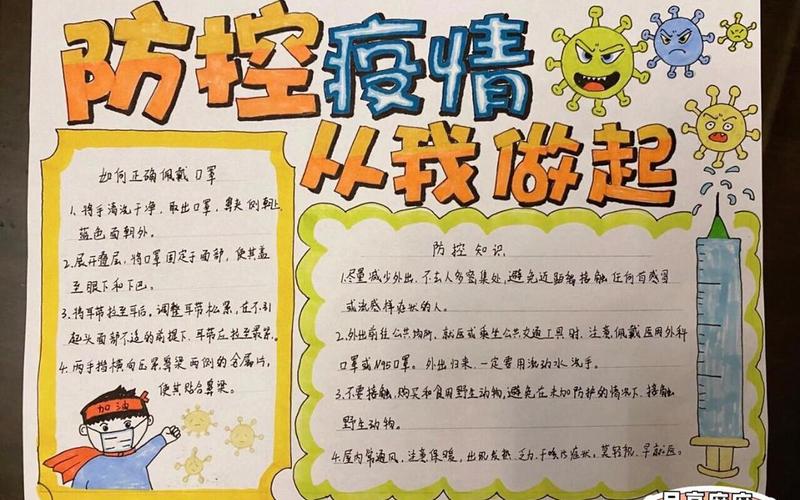 防控疫情
从我做起
如何正确佩戴口罩
1、将手清洗干净，取出口罩，鼻夹侧朝上
蓝色面朝外。
2.展开叠层，将口罩固定于面部，使其盖
至眼下和下巴。
3.将耳带拉至耳后，调整耳带松紧，在不引
起头面部不适的前提下，耳带应拉至最紧。
4.两手指横向压紧鼻梁两侧的金属片，
使其贴合鼻梁。
加油
防控知识
1.尽量减少外出，不去人多密集处，避免近距离接触任何有感冒
或流感样症状的人。
2.外出前往公共场所，就医或乘坐公共交通工具时，注意佩戴医用外科
口罩或N95口罩。外出归来，一定要用流动水洗手。
3.不要接触、购买和食用野生动物，避免在未加防护的情况下，接触
野生动物。
4.屋内常通风，注意保暖，出现发热、乏力、干咳等症状，莫轻视，早就医。